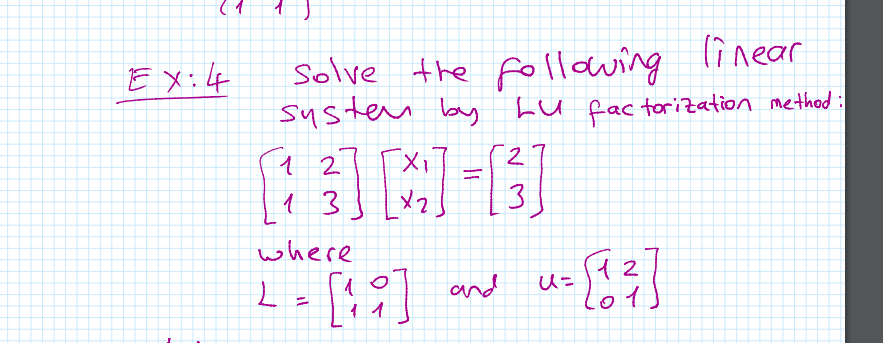 (1 1)
Ex:4 Solve the following linear
system by LU factorization method:
[1 2] [x1] = [2]
[1 3] [x2] [3]
where
L = [1 0] and u = [1 2]
[1 1] [0 1]